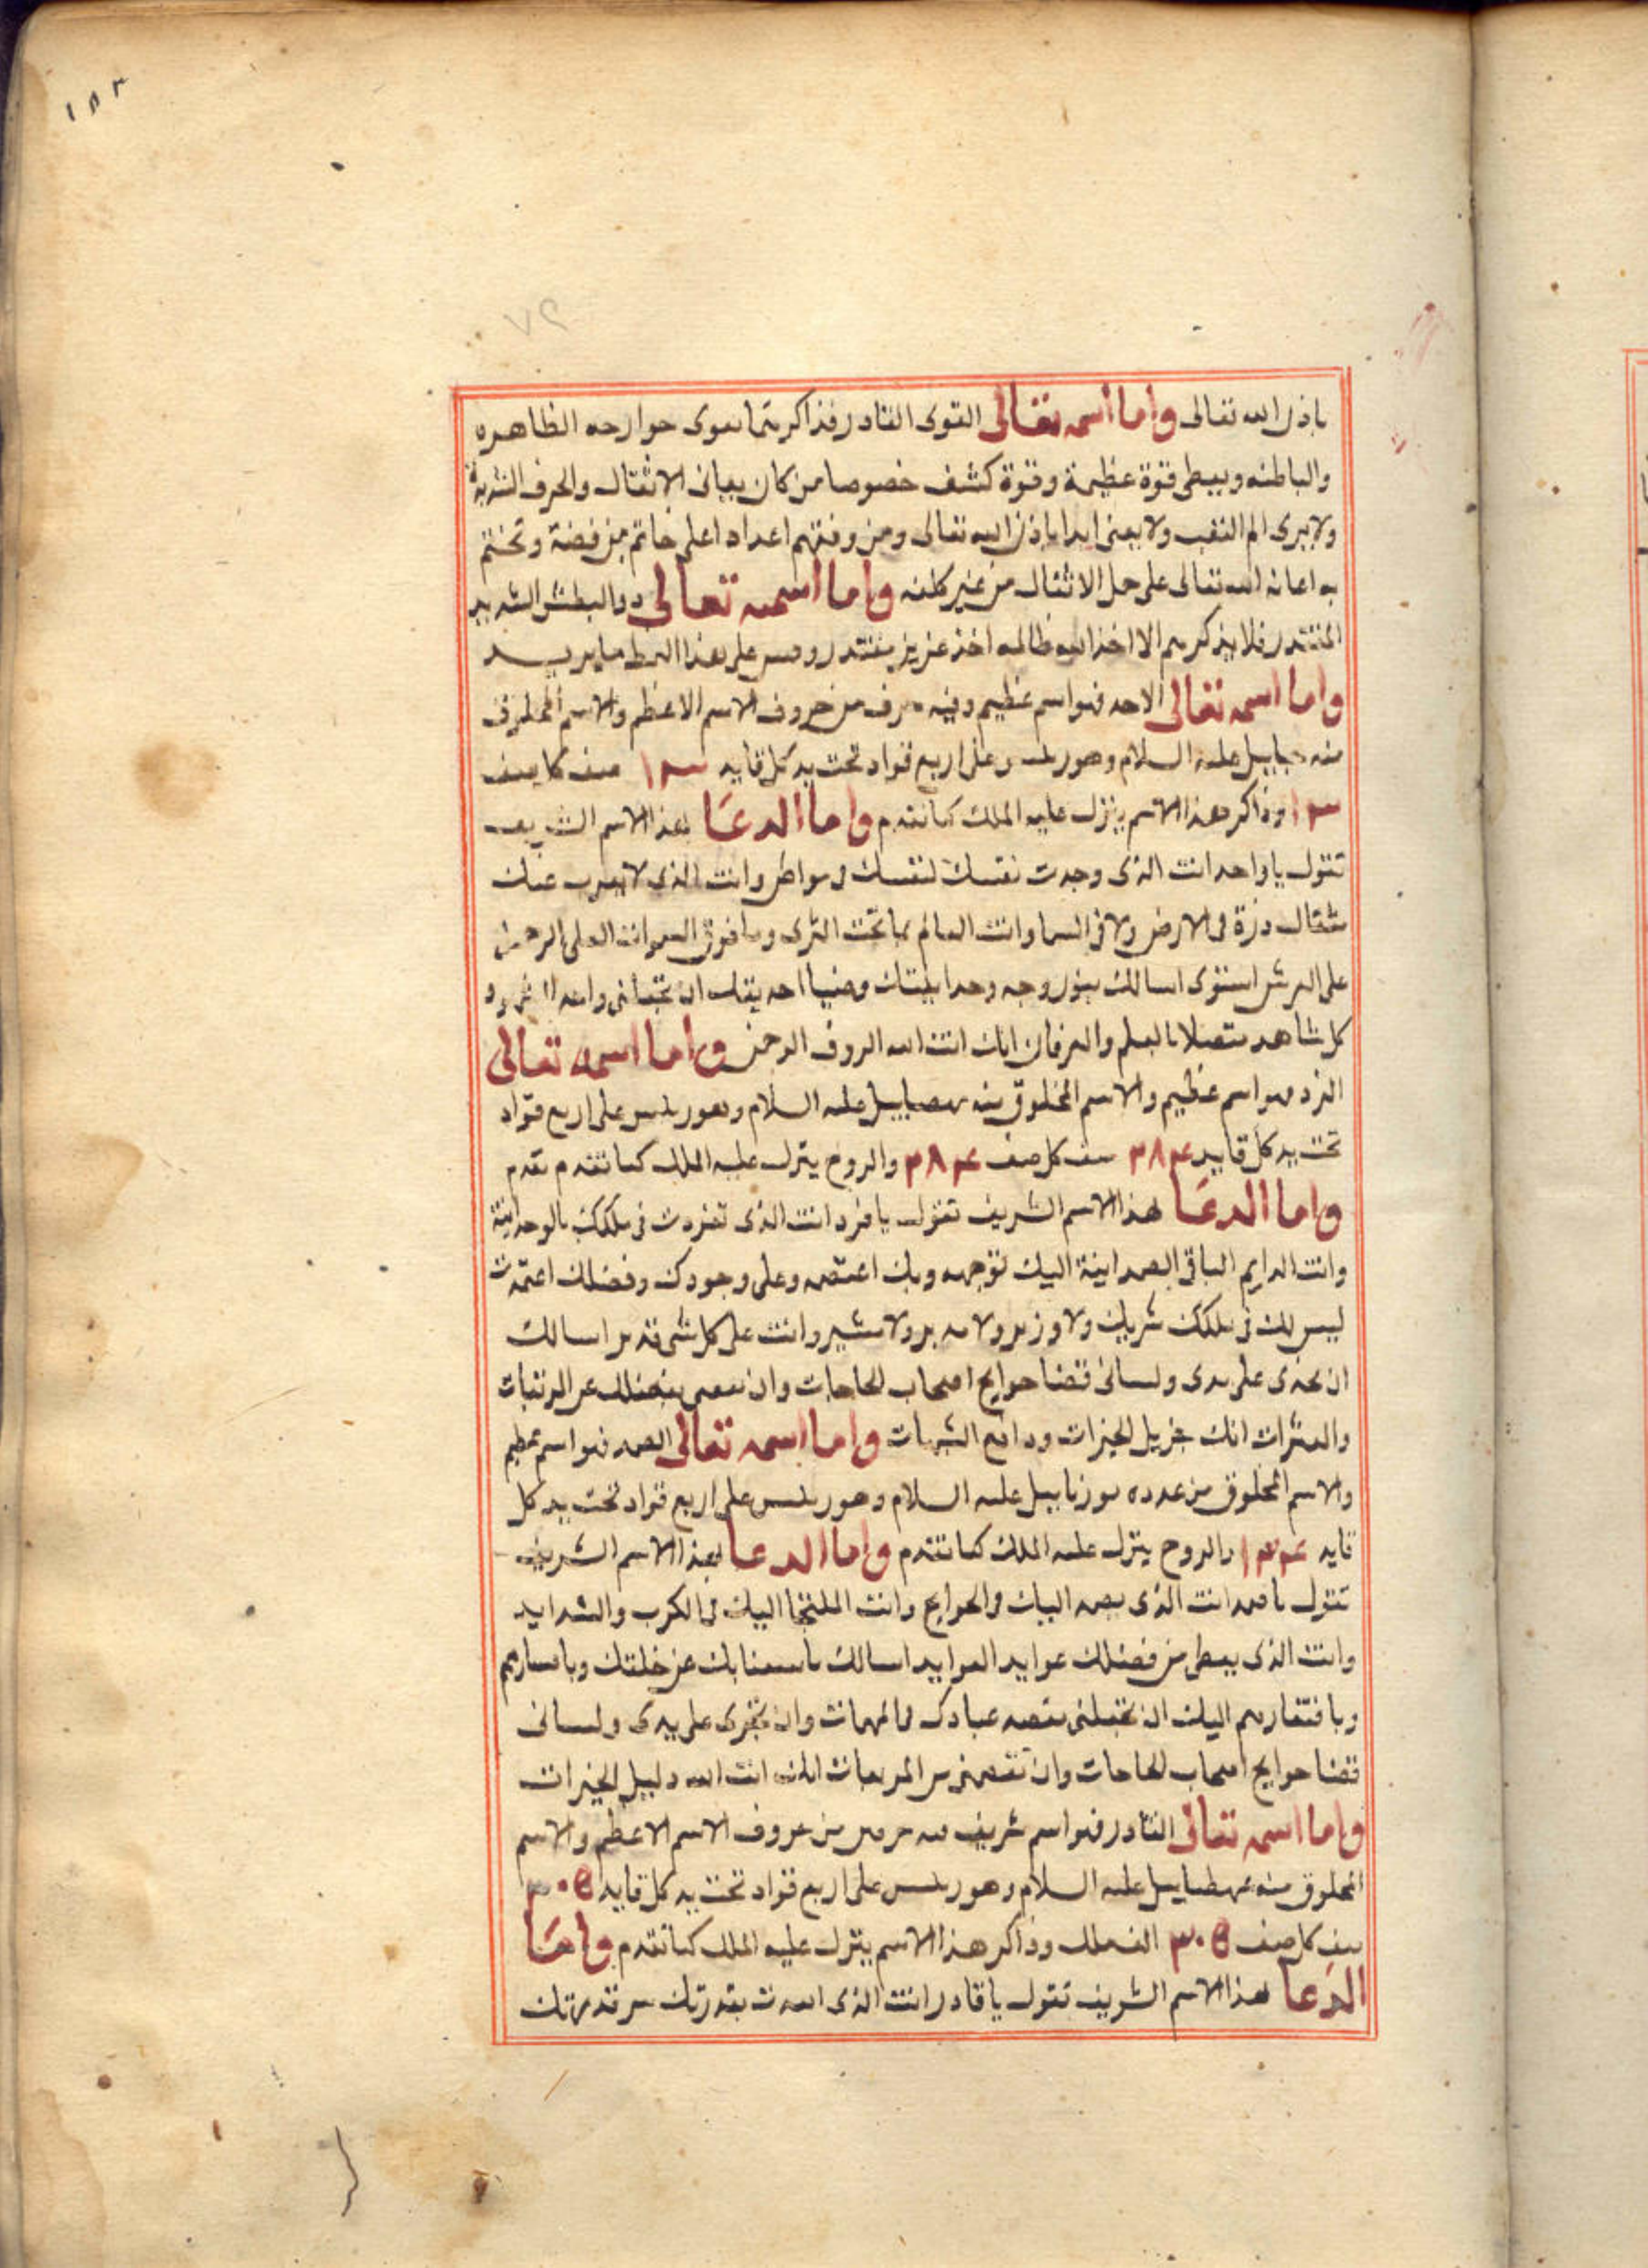 ١٨٣
٧٩
باذن الله تعالى واما اسمه تعالى القوى القادر فذاكرهما يقوى جوارحه الظاهره
والباطنه ويعطى قوة عظيمة وقوة كشف خصوصا من كان يعانى الاثقال والحرف الشديدة
ولا يرى الم التعب ولا يعيى ابدا باذن الله تعالى ومن وفقهم اعداد اعلى خاتم من فضة وتختم
به اعانه الله تعالى على حمل الاثقال من غير كلفه واما اسمه تعالى ذو البطش الشديد
المقتدر فلا يذكرهم الا اخذ الله ظالمه اخذ عزيز مقتدر وقس على هذا النمط ما يريد
واما اسمه تعالى الاحد فهو اسم عظيم وفيه حرف من حروف الاسم الاعظم والاسم المخلوق
منه عليه السلام وهو رئيس على اربع قواد تحت يد كل قايد ١٣ صف كل صف
١٣ وذاكر هذا الاسم ينزل عليه الملك كما تقدم واما الدعا لهذا الاسم الشريف
تقول يا واحد انت الذى وجدت نفسك لنفسك وانت الذى لا يعزب عنك
مثقال ذرة فى الارض ولا فى السما وانت العالم بما تحت الثرى وما فوق العلى الرحمن
على العرش استوى اسالك بنور وجه وحدانيتك وضيا احديتك ان تجعلنى
كل شاهد متصلا بالعلم والعرفان انك انت الله الروف الرحمن واما اسمه تعالى
الفرد فهو اسم عظيم والاسم المخلوق منه عليه السلام وهو رئيس على اربع قواد
تحت يد كل قايد ٣٨٤ صف كل صف ٣٨٤ والروح ينزل عليه الملك كما تقدم تقدم
واما الدعا لهذا الاسم الشريف تقول يا فرد انت الذى تفردت فى ملكك بالوحدانية
وانت الدايم الباقى الصمدانية اليك توجهه وبك اعتصمه وعلى وجودك وفضلك اعتمدت
ليس لك فى ملكك شريك ولا وزير ولا مدبر ولا مشير وانت على كل شى قدير اسالك
ان تجرى على يدى ولسانى قضا حوايج اصحاب الحاجات وان بفضلك عن
والعثرات انك جزيل الخيرات ودافع الشبهات واما اسمه تعالى الصمد فهو اسم عظيم
والاسم المخلوق من عدده عليه السلام وهو رئيس على اربع قواد تحت يد كل
قايد ١٣٤ والروح ينزل عليه الملك كما تقدم واما الدعا لهذا الاسم الشريف
تقول يا صمد انت الذى يصمد اليك فى الحوايج وانت الملتجا اليك فى الكرب والشدايد
وانت الذى يعطى من فضلك عوايد العوايد اسالك باستغنايك عن خلقك
وبافتقارهم اليك ان تجعلنى مقصد عبادك فى المهمات وان تجرى على يدى ولسانى
قضا حوايج اصحاب الحاجات وان انك انت الله دليل الخيرات
واما اسمه تعالى القادر فهو اسم شريف فيه حرفين من حروف الاسم الاعظم والاسم
المخلوق منه عليه السلام وهو رئيس على اربع قواد تحت يد كل قايد ٣٠٥
صف كل صف ٣٠٥ الف ملك وذاكر هذا الاسم ينزل عليه الملك كما تقدم واما
الدعا لهذا الاسم الشريف تقول يا قادر انت الذى بقدرتك سر قدرتك